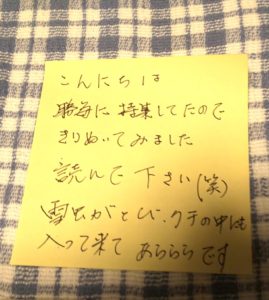 こんにちは
職毎に特集してたので
きりぬいてみました
読んで下さい(笑)
雪虫がとび、クチの中にも
入って来て あらららです